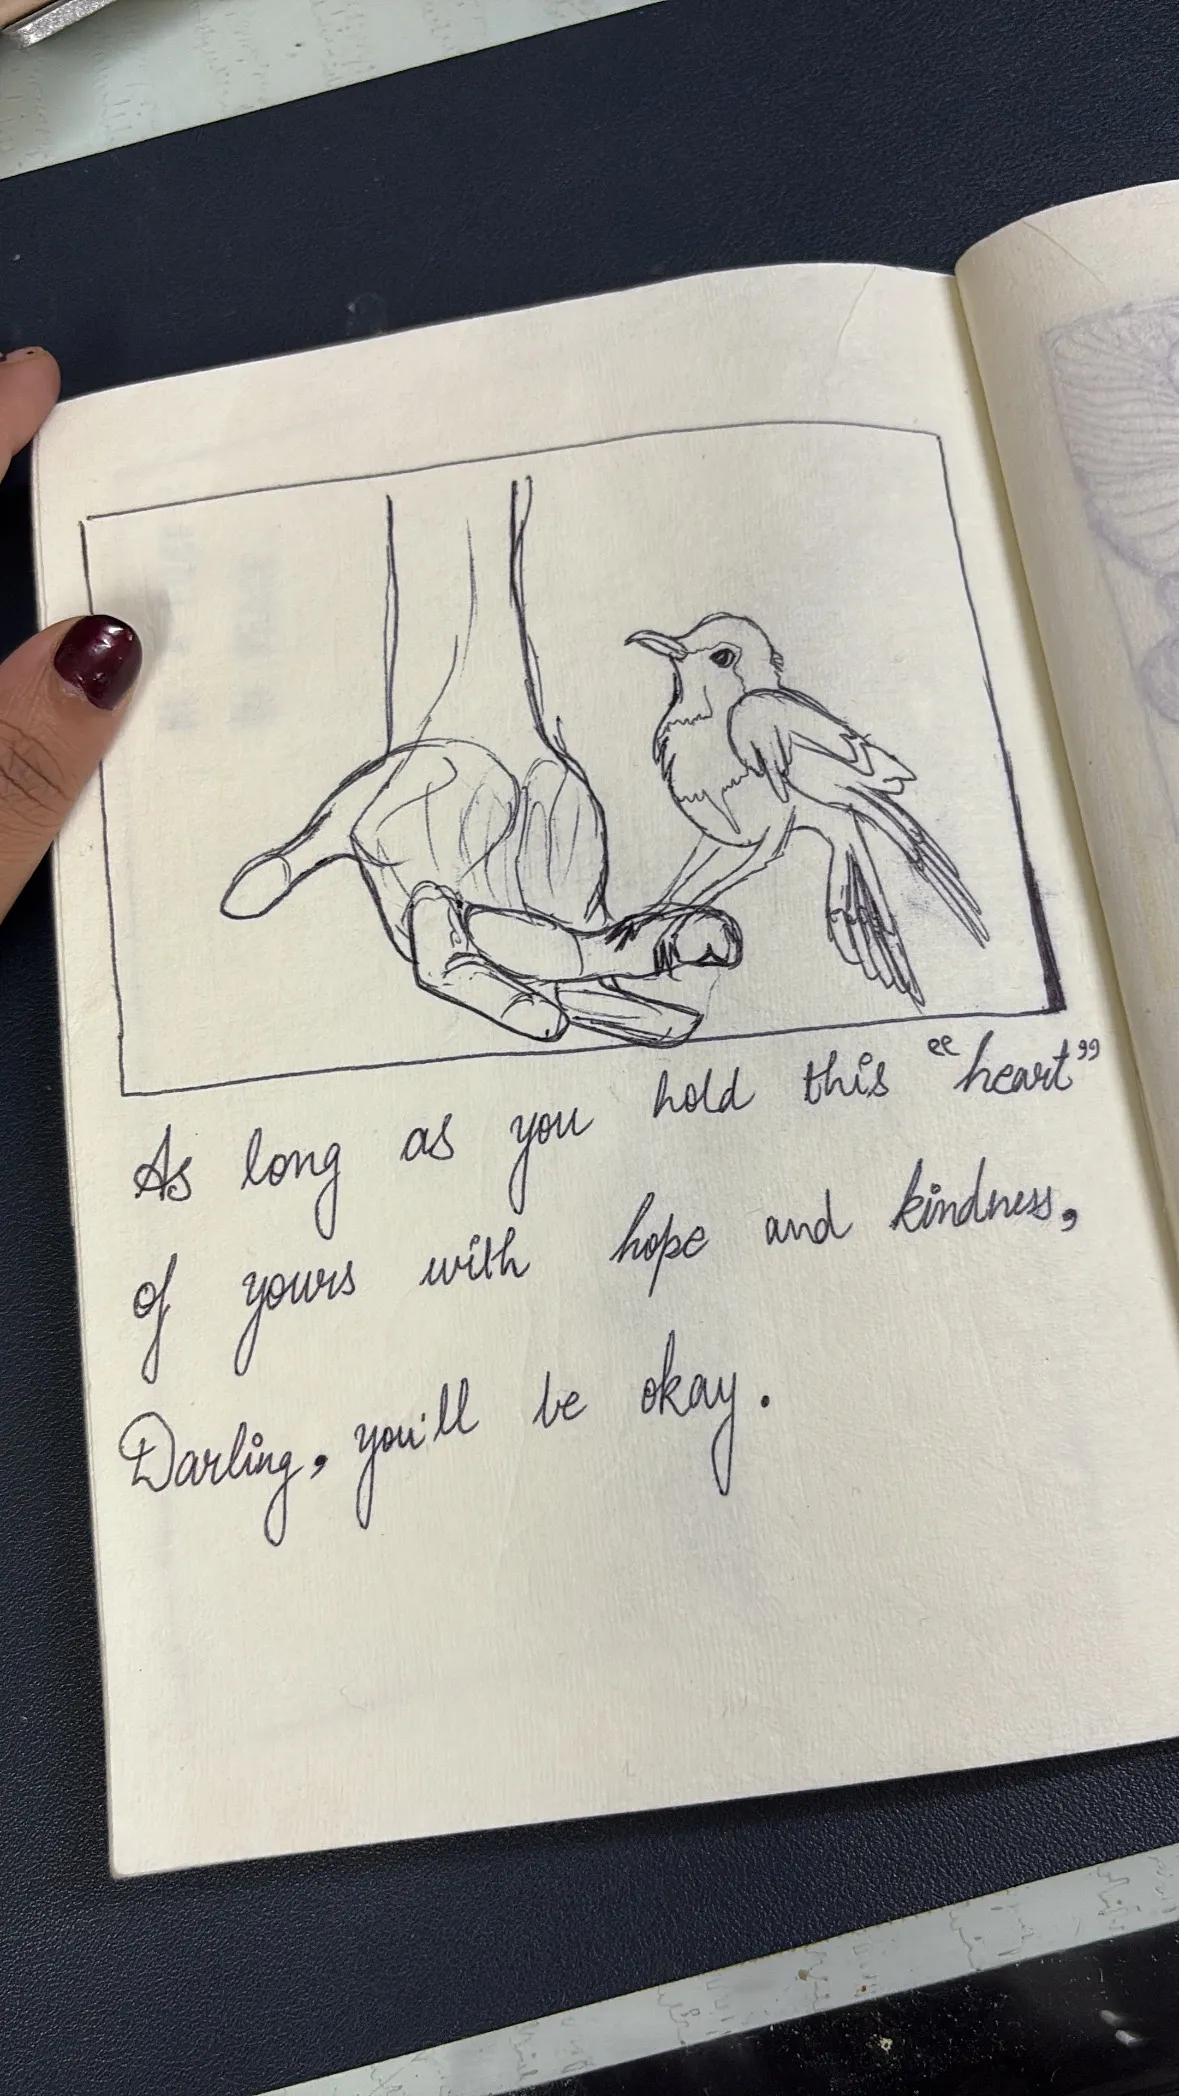 As long as you hold this "heart"
of yours with hope and kindness,
Darling, you'll be okay.